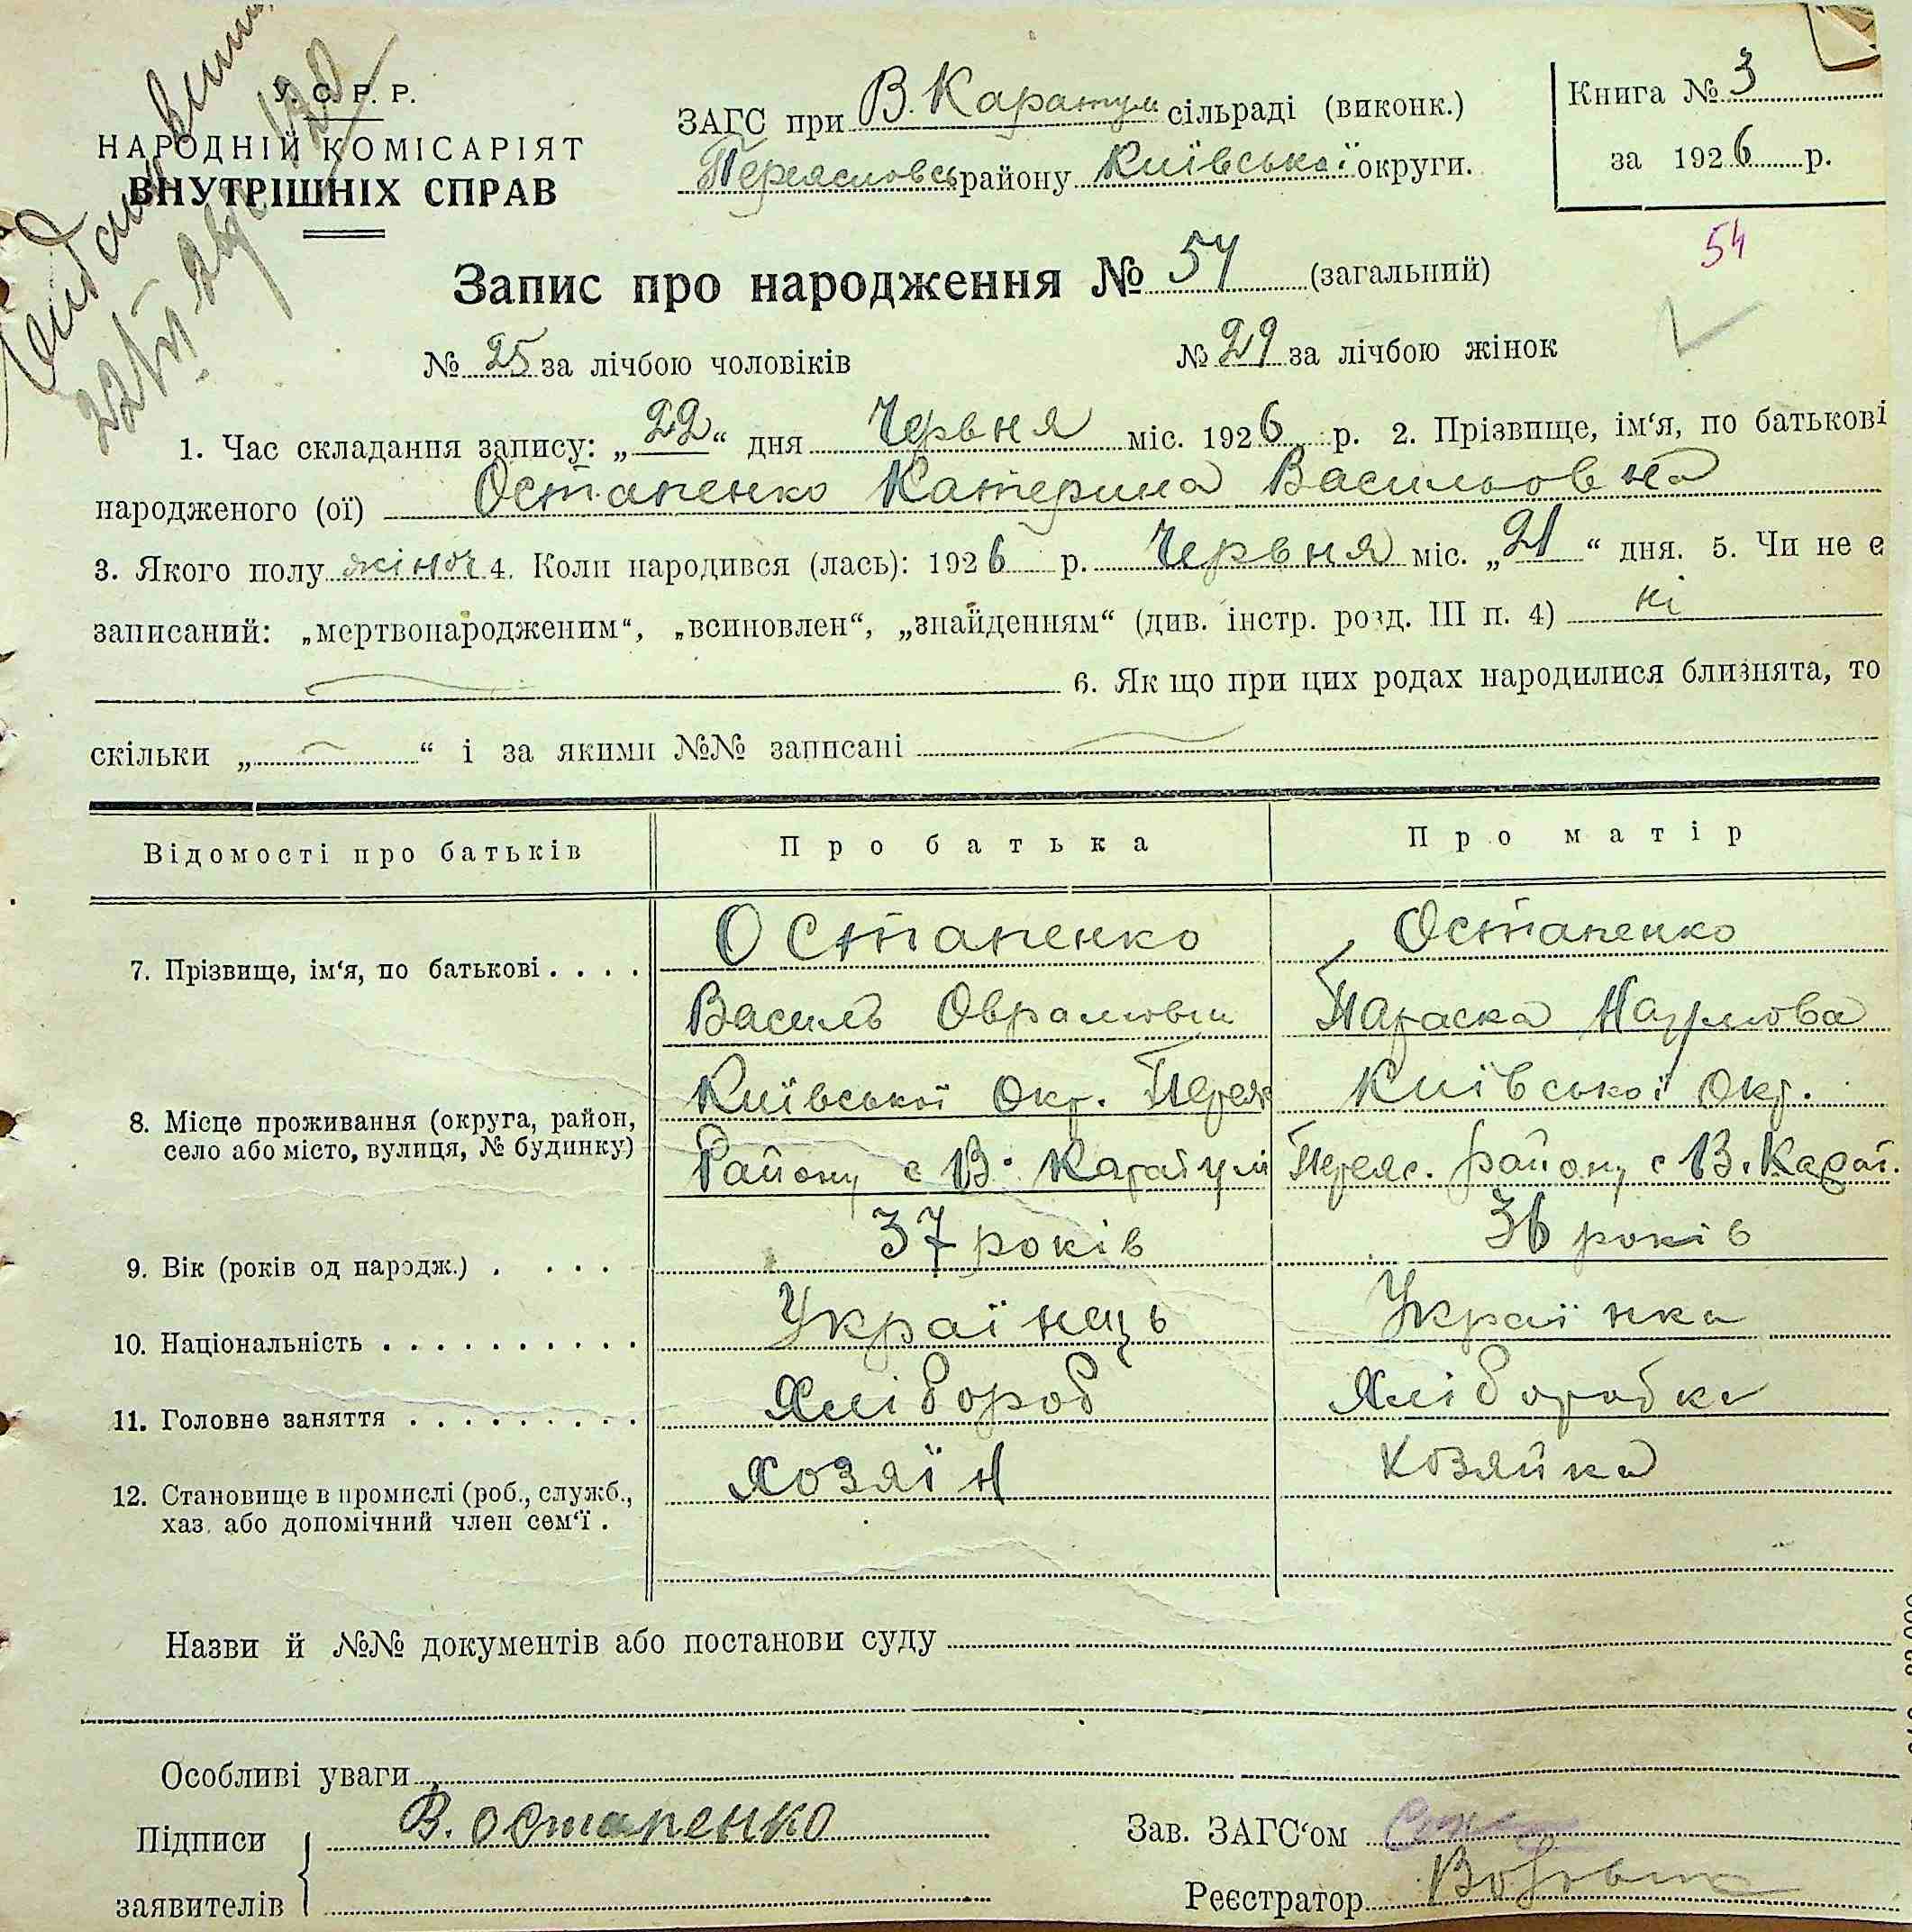 У. С. Р. Р.
НАРОДНІЙ КОМІСАРІЯТ
ВНУТРІШНІХ СПРАВ
ЗАГС при В. Каратул сільраді (виконк.)
Переяславсь району Київської округи.
Книга № 3
за 1926 р.
54
Запис про народження № 54 (загальний)
№ 25 за лічбою чоловіків № 29 за лічбою жінок
1. Час складання запису: „22“ дня Червня міс. 1926 р. 2. Прізвище, ім‘я, по батькові
народженого (ої) Остапенко Катерина Васильовна
3. Якого полу жіноч 4. Коли народився (лась): 1926 р. Червня міс. „21“ дня. 5. Чи не є
записаний: „мертвонародженим“, „всиновлен“, „знайденням“ (див. інстр. розд. III п. 4) ні
6. Як що при цих родах народилися близнята, то
скільки „ “ і за якими №№ записані
Відомості про батьків Про батька Про матір
7. Прізвище, ім‘я, по батькові . . . . Остапенко Остапенко
Василь Оврамович Параска Наумова
8. Місце проживання (округа, район, село або місто, вулиця, № будинку) Київської Окр. Переяс Київської Окр.
Району с В. Каратулі Переяс. району с В. Карат.
9. Вік (років од народж.) . . . . 37 років 36 років
10. Національність . . . . . . . . . . Українець Українка
11. Головне заняття . . . . . . . . . Хлібороб Хліборобка
12. Становище в промислі (роб., служб., хаз. або допомічний член сем‘ї . Хозяїн Хозяйка
Назви й №№ документів або постанови суду
Особливі уваги
Підписи заявителів В. Остапенко
Зав. ЗАГС‘ом
Реєстратор